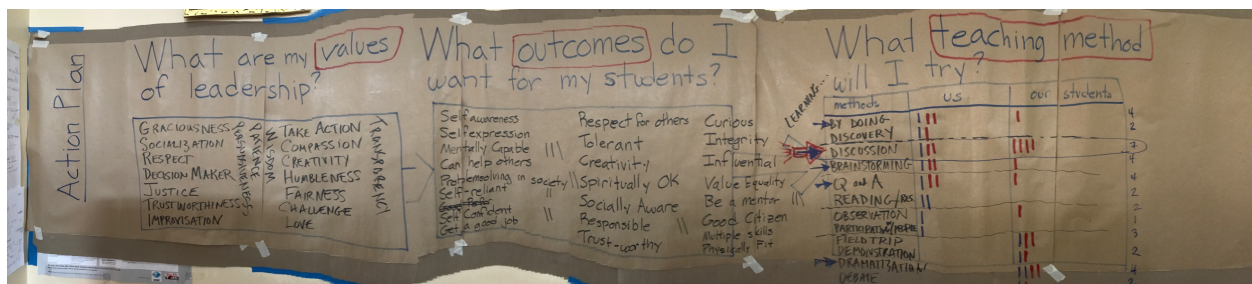 Action Plan
What are my values
of leadership?
GRACIOUSNESS
SOCIALIZATION
RESPECT
DECISION MAKER
JUSTICE
TRUSTWORTHINESS
IMPROVISATION
PATIENCE
WISDOM
TAKE ACTION
COMPASSION
CREATIVITY
HUMBLENESS
FAIRNESS
CHALLENGE
LOVE
What outcomes do I
want for my students?
Self awareness
Self expression
Mentally Capable
Can help others
Problemsolving in society
Self-reliant
Self Confident
Get a good job
Respect for others
Tolerant
Creativity
Spiritually OK
Socially Aware
Responsible
Trust-worthy
Curious
Integrity
Influential
Value Equality
Be a mentor
Good Citizen
Multiple skills
Physically Fit
What teaching method
will I try?
LEARNING...
methods us our students
BY DOING 4
DISCOVERY 2
DISCUSSION 7
BRAINSTORMING 4
Q and A 4
READING/RES. 2
OBSERVATION 2
1
FIELD TRIP 3
DEMONSTRATION 2
DRAMATIZATION 4
DEBATE 2